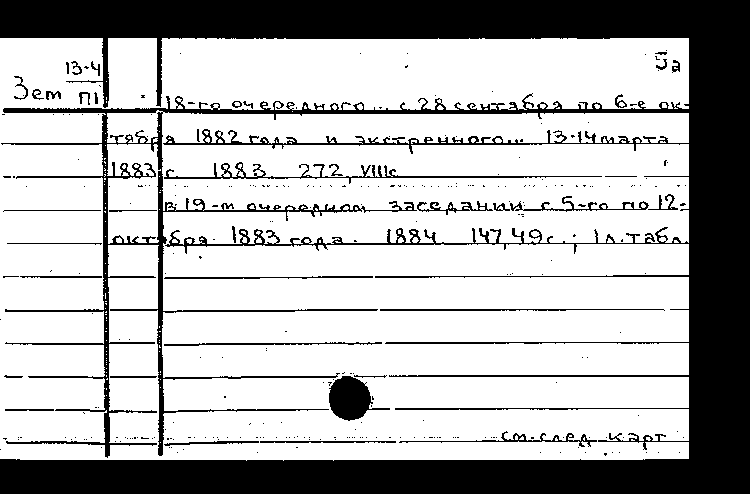 5а
13-4
Зем П1
18-го очередного... с 28 сентября по 6-е ок-
тября 1882 года и экстренного... 13-14 марта
1883 г. 1883. 272, VIIIс
в 19-м очередном заседании с 5-го по 12-
октября 1883 года. 1884. 147, 49с.; 1л. табл.
см. след карт